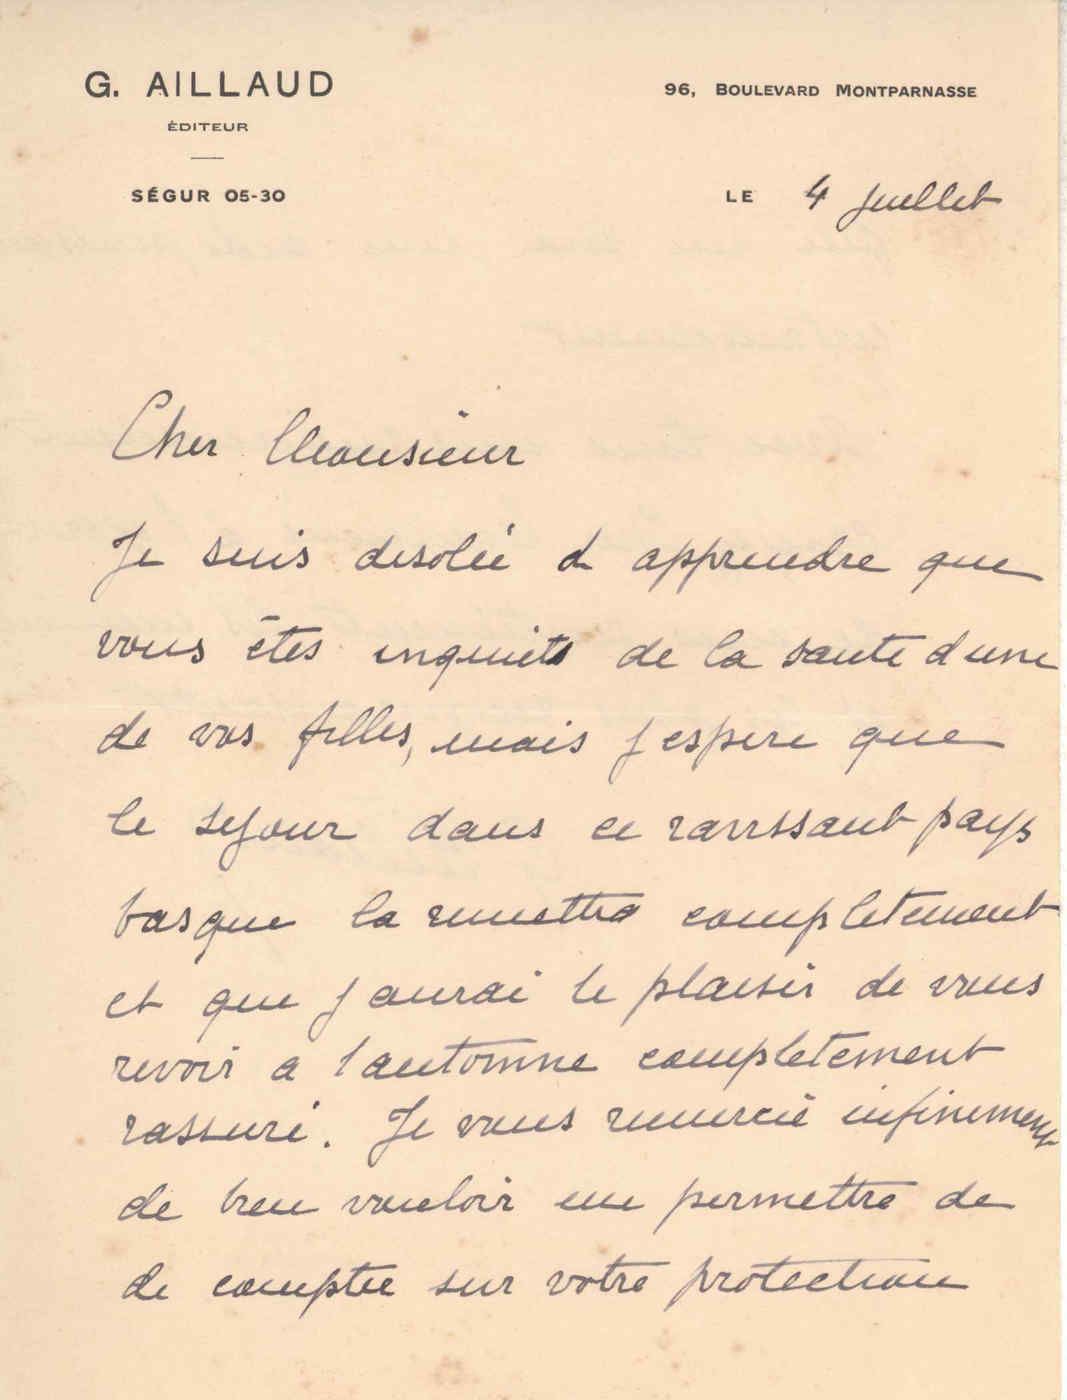 G. AILLAUD
ÉDITEUR
SÉGUR 05-30
96, BOULEVARD MONTPARNASSE
LE 4 juillet
Cher Monsieur
Je suis desolée d apprendre que
vous êtes inquiets de la sante d une
de vos filles, mais j espere que
le sejour dans ce ravissant pays
basque la remettra completement
et que j aurai le plaisir de vous
revoir a l automne completement
rassuré. Je vous remercie infiniment
de bien vouloir me permettre de
de compter sur votre protection